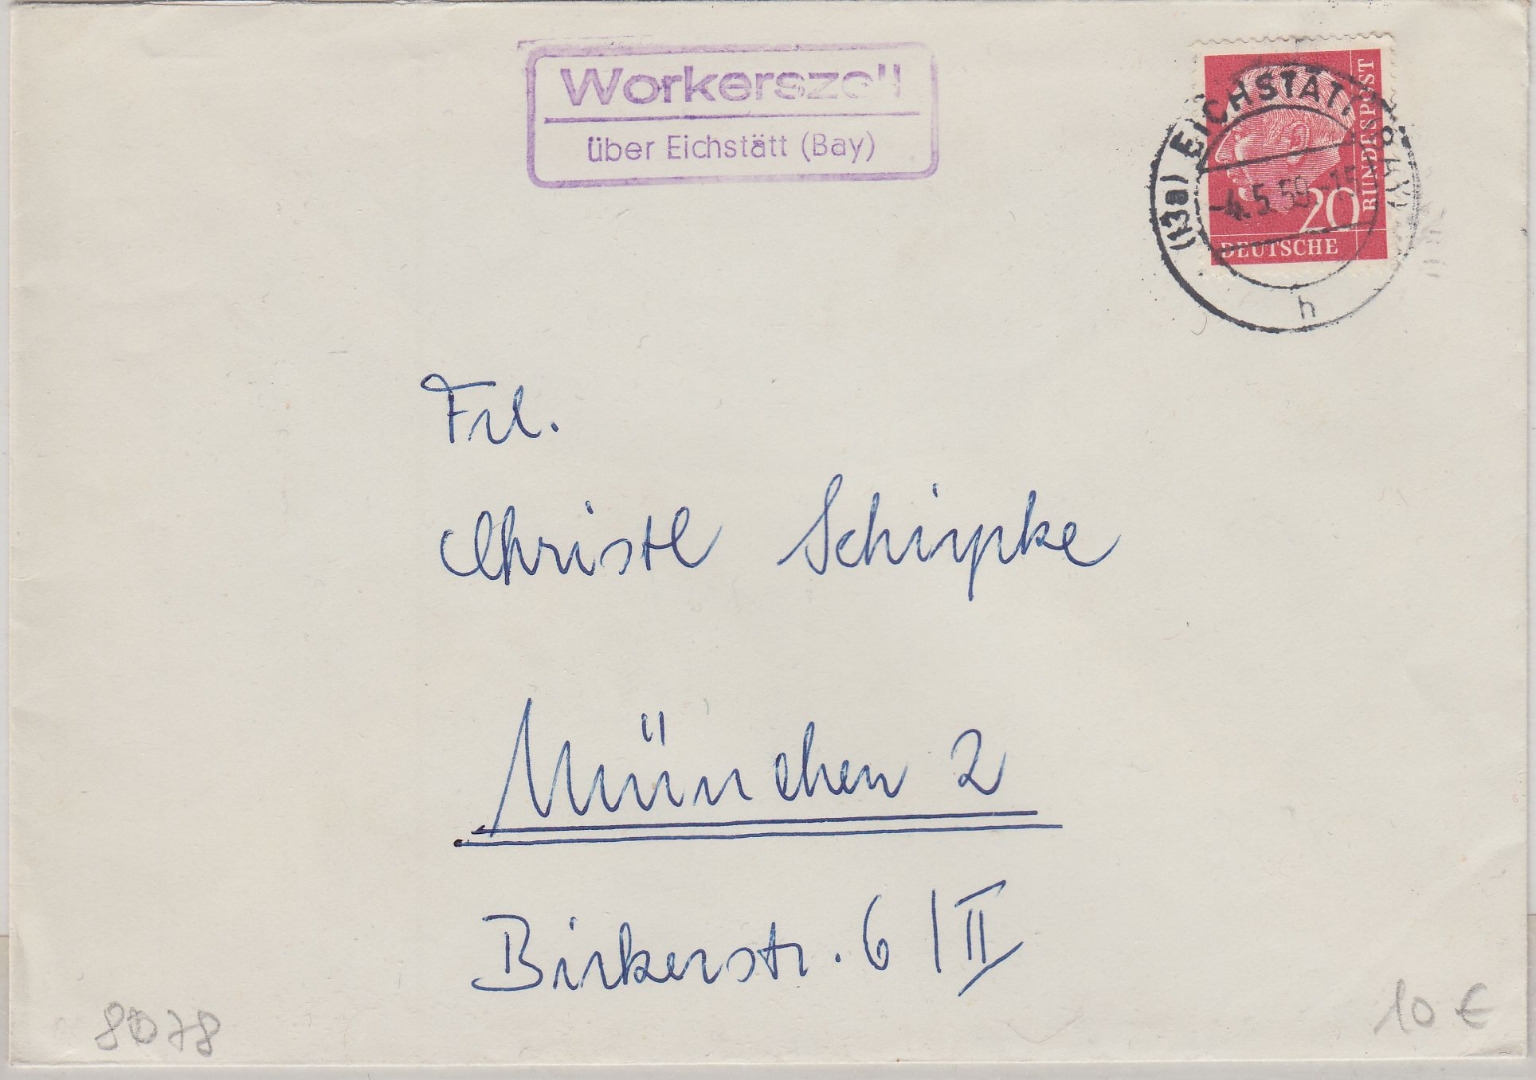 Workerszell
über Eichstätt (Bay)
(13a) EICHSTÄTT (BAY)
-4.5.59.-15
h
20
DEUTSCHE
BUNDESPOST
Frl.
Christl Schirpke
München 2
Birkerstr. 6 / II
8078
10 €